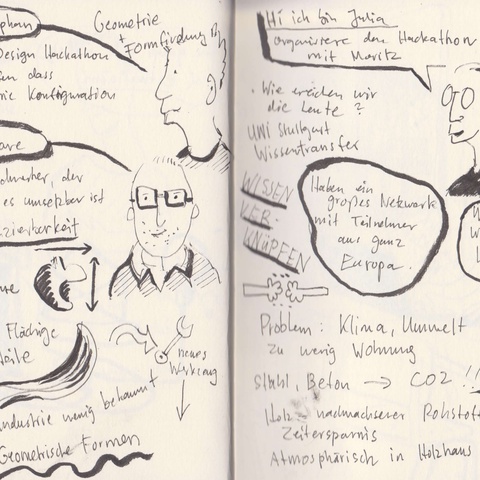 Geometrie
+
Formfindung
Design Hackathon
dass
Konfiguration
der
es umsetzbar ist
zierbarkeit
Flächige
neues
Werkzeug
Industrie wenig bekannt
Geometrische Formen
Hi ich bin Julia
organisiere den Hackathon
mit Moritz
. Wie erreichen wir
die Leute ?
UNI Stuttgart
Wissentransfer
WISSEN
VER-
KNÜPFEN
Haben ein
großes Netzwerk
mit Teilnehmer
aus ganz
Europa.
Problem: Klima, Umwelt
zu wenig Wohnung
Stahl, Beton → CO2 !!
Holz nachwachsener Rohstoff
Zeitersparnis
Atmosphärisch in Holzhaus